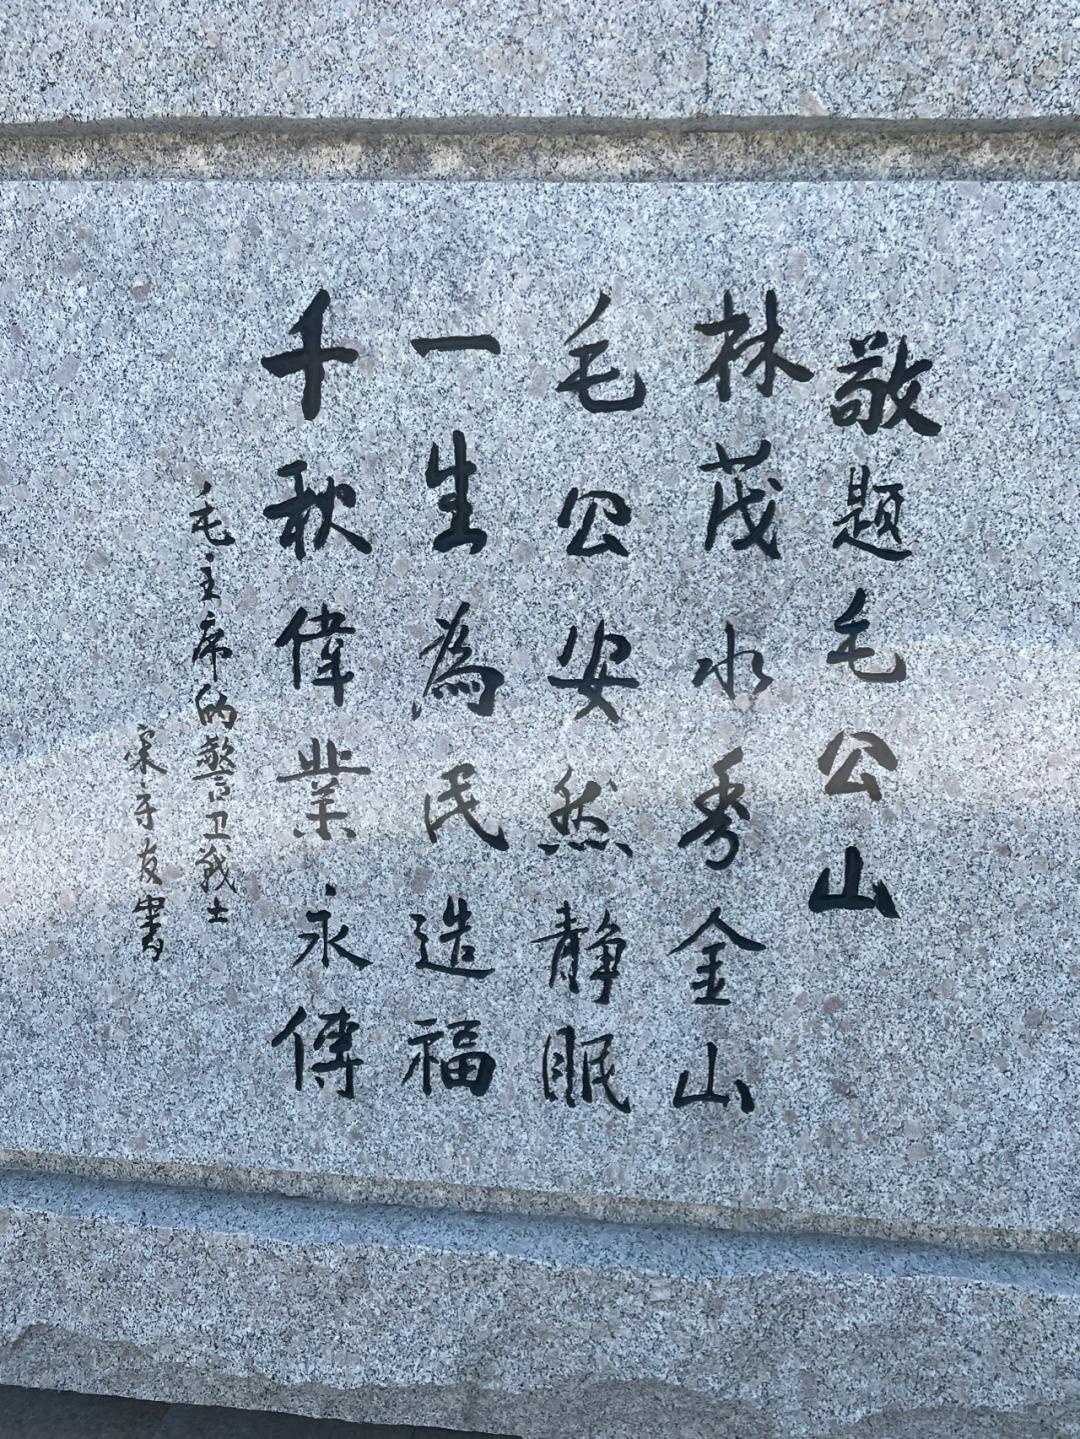 敬题毛公山
林茂水秀金山
毛公安然静眠
一生為民造福
千秋偉業永傳
毛主席的警卫战士
宋守友書